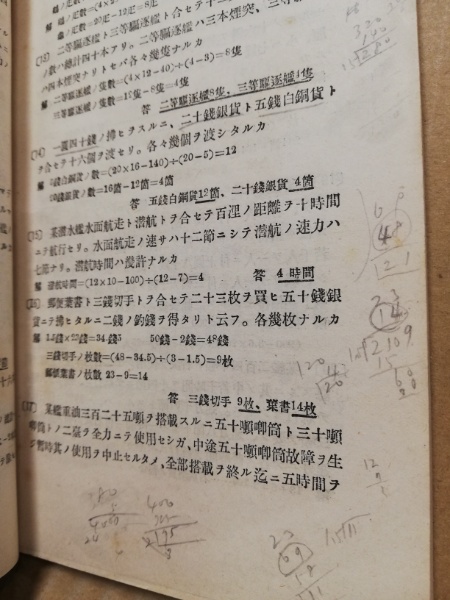 (13) 二等驅逐艦ト三等驅逐艦ト合セテ十二隻
ノ數ハ總計四十本アリ。二等驅逐艦ハ三本煙突、三等驅逐
四本煙突ナリトセバ各々幾隻ナルカ
解 二等驅逐艦ノ隻數=(4×12-40)÷(4-3)=8隻
三等驅逐艦ノ隻數=12隻-8隻=4隻
答 二等驅逐艦8隻、三等驅逐艦4隻
(14) 一圓四十錢ノ拂ヲスルニ、二十錢銀貨ト五錢白銅貨ト
ヲ合セテ十六個ヲ渡セリ。各々幾個ヲ渡シタルカ
解 5錢白銅貨ノ數=(20×16-140)÷(20-5)=12
20錢銀貨ノ數=16箇-12箇=4箇
答 五錢白銅貨12箇、二十錢銀貨 4箇
(15) 某潛水艦水面航走ト潛航トヲ合セテ百浬ノ距離ヲ十時間
ニテ航行セリ。水面航走ノ速サハ十二節ニシテ潛航ノ速力ハ
七節ナリ。潛航時間ハ幾許ナルカ
解 潛航時間=(12×10-100)÷(12-7)=4 答 4時間
(16) 郵便葉書ト三錢切手トヲ合セテ二十三枚ヲ買ヒ五十錢銀
貨ニテ拂ヒタルニ二錢ノ釣錢ヲ得タリト云フ。各幾枚ナルカ
解 1.5錢×23錢=34錢5 50錢-2錢=48錢
三錢切手ノ枚數=(48-34.5)÷(3-1.5)=9枚
郵便葉書ノ枚數 23-9=14
答 三錢切手 9枚、葉書14枚
(17) 某艦重油三百二十五噸ヲ搭載スルニ五十噸喞筒ト三十噸
喞筒トノ二臺ヲ全力ニテ使用セシガ、中途五十噸喞筒故障ヲ生
ジ暫時其ノ使用ヲ中止セルタメ、全部搭載ヲ終ル迄ニ五時間ヲ